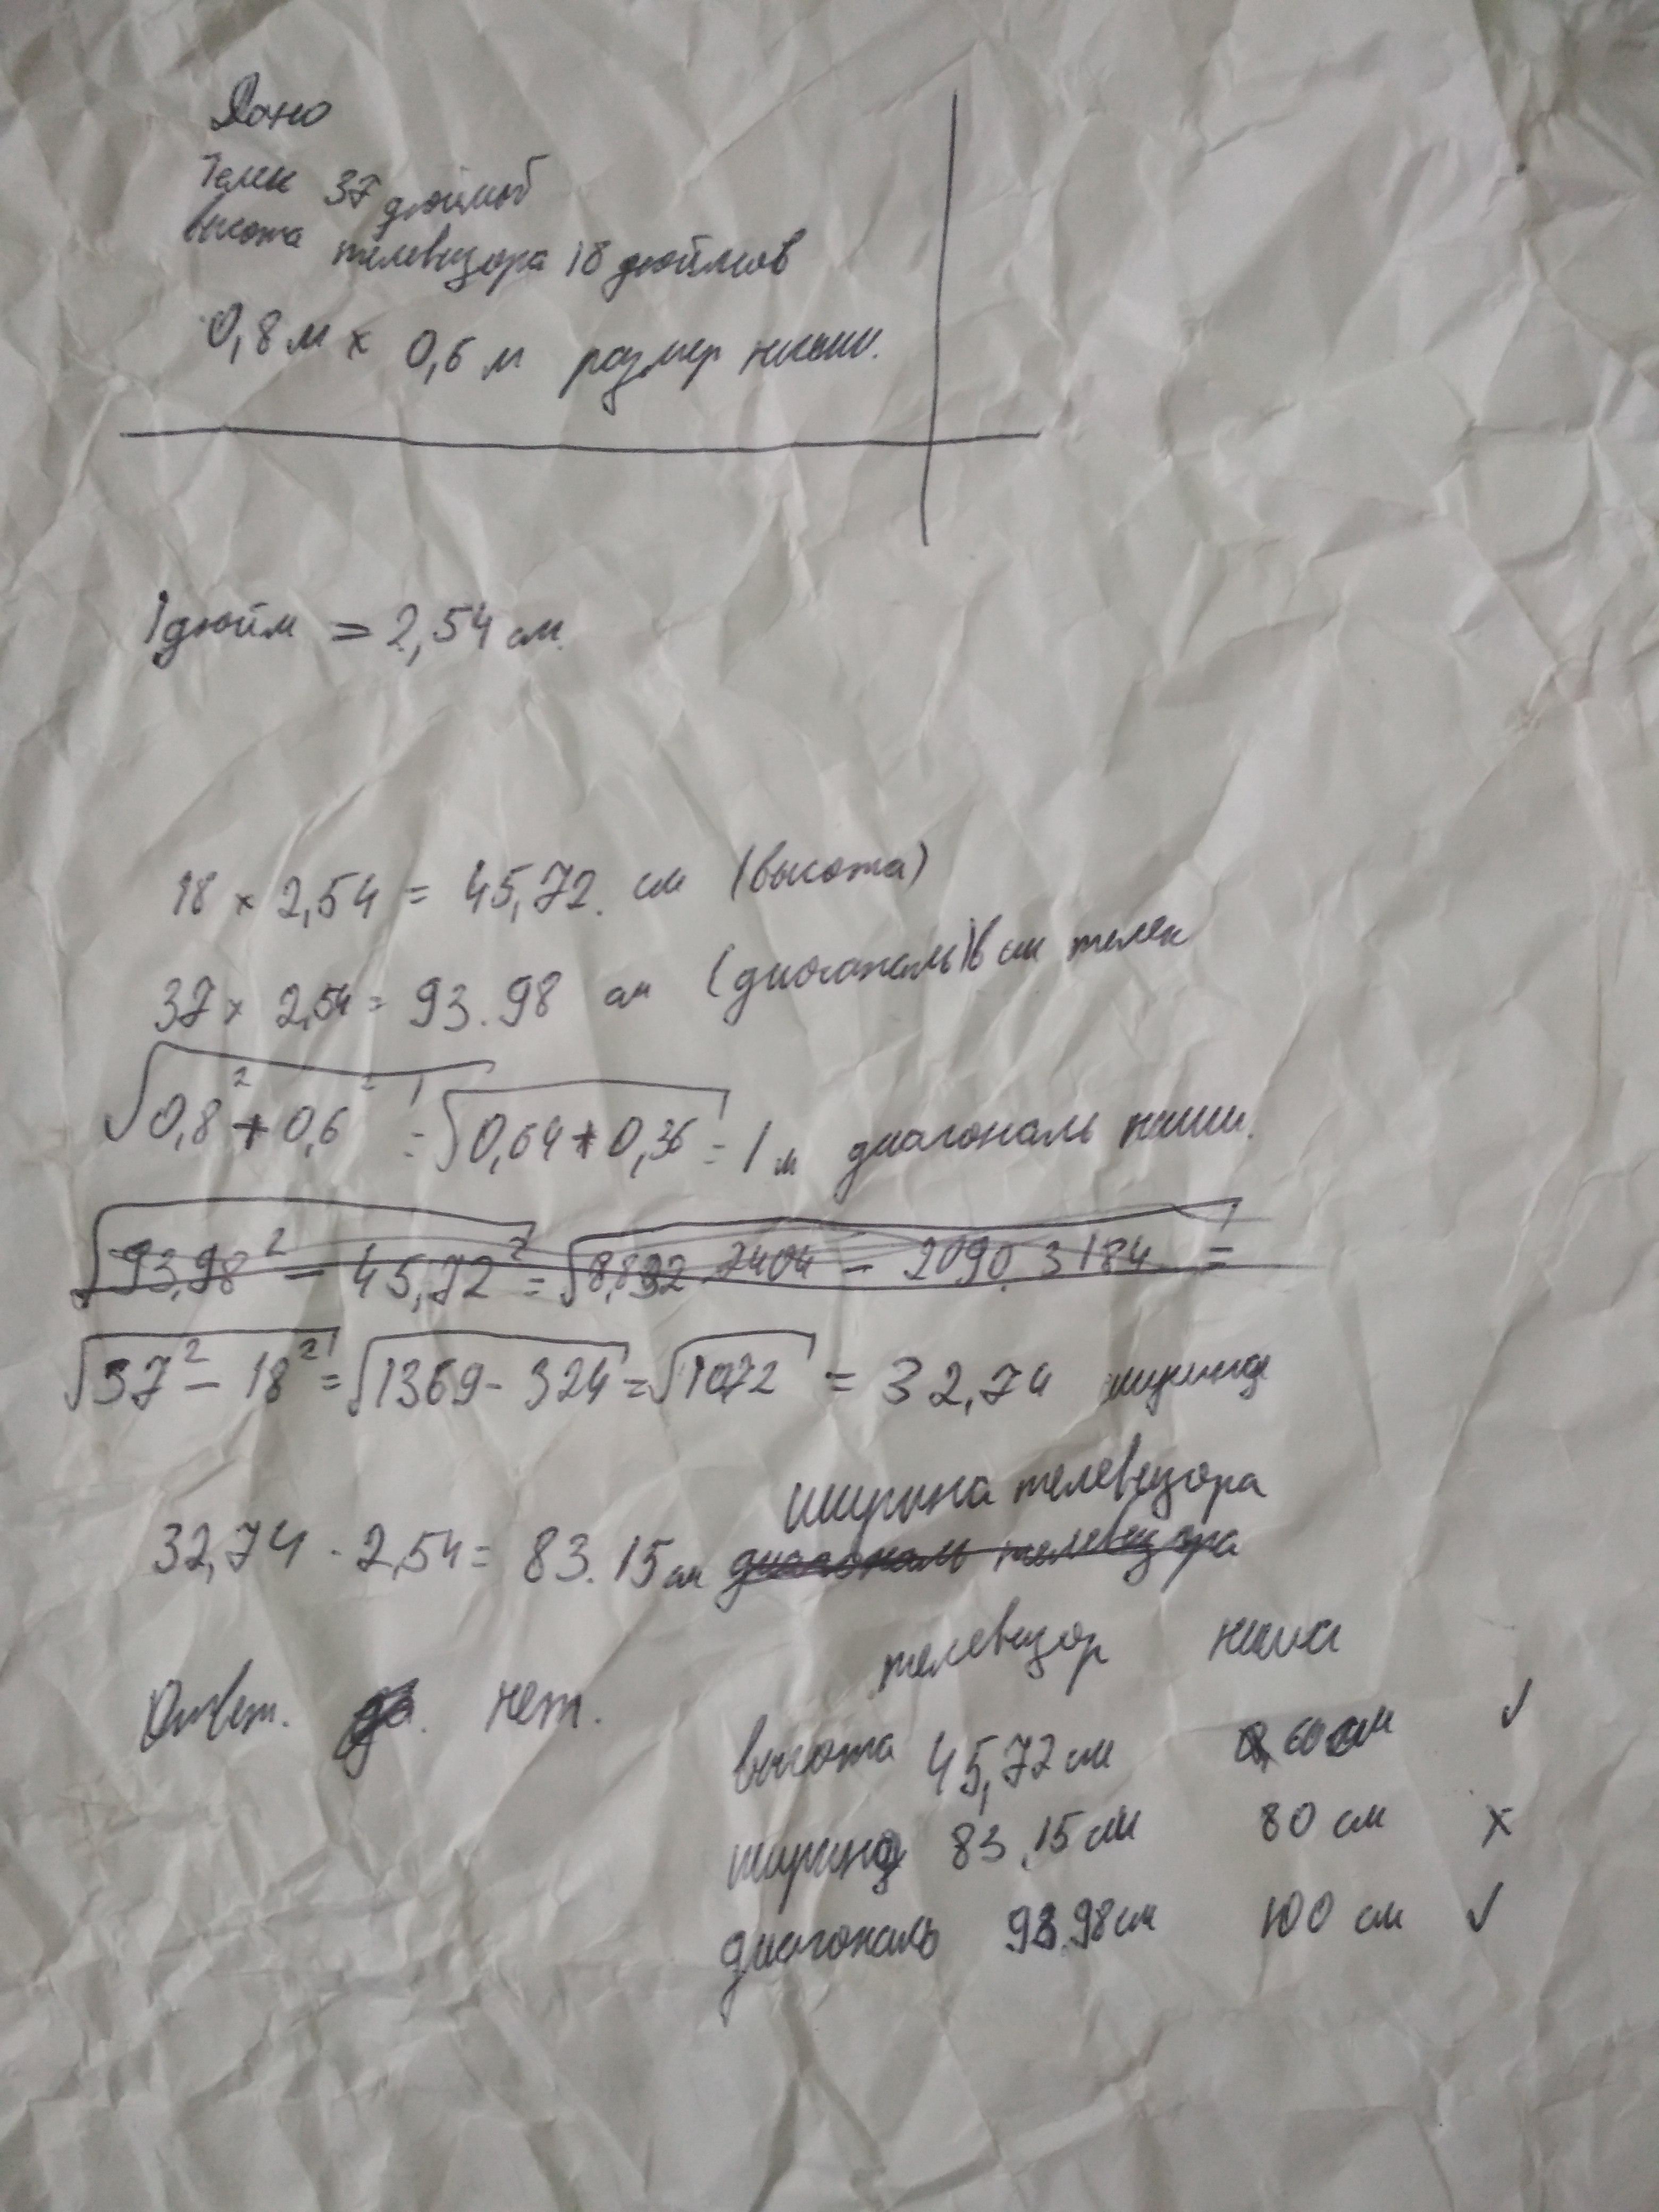 Дано
Телек 37 дюймов
высота телевизора 18 дюймов
0,8 м × 0,6 м размер ниши.
1 дюйм = 2,54 см.
18 × 2,54 = 45,72. см (высота)
37 × 2,54 = 93.98 см (диагональ) в см телек
√0,8² + 0,6² = √0,64 + 0,36 = 1 м диагональ ниши.
√93,98² - 45,72² = √8,832.7404 - 2090.3184 =
√37² - 18² = √1369 - 324 = √1072 = 32,74 ширина
ширина телевизора
32,74 · 2,54 = 83.15 см диагональ телевизора
телевизор ниша
Ответ. да. нет.
высота 45,72 см 60 см ✓
ширина 83,15 см 80 см ×
диагональ 93.98 см 100 см ✓